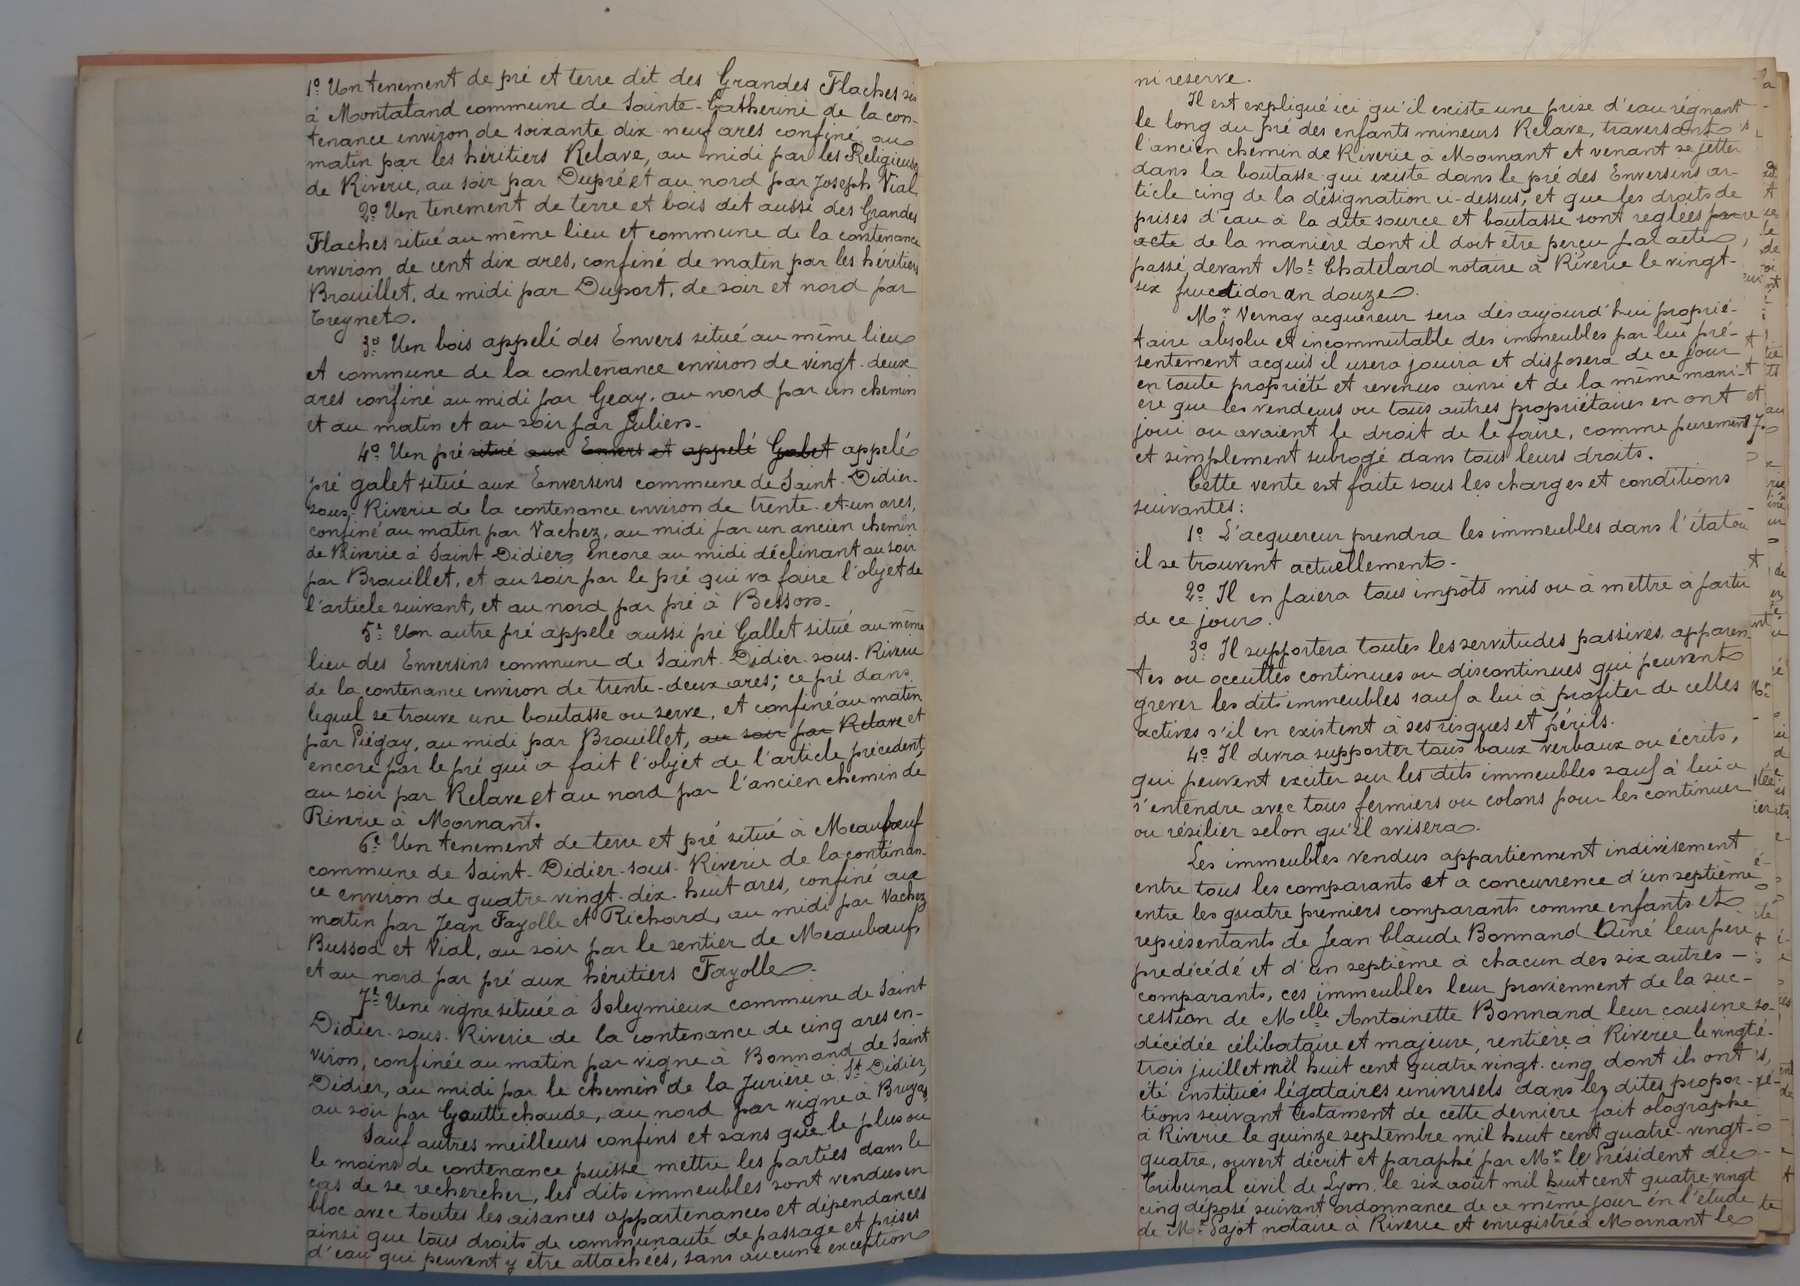 1º Un tenement de pré et terre dit des Grandes Flaches sis
à Montaland commune de Sainte-Catherine de la con-
tenance environ de soixante dix neuf ares confiné au
matin par les héritiers Relave, au midi par les Religieuses
de Riverie, au soir par Dupré et au nord par Joseph Vial
2º Un tenement de terre et bois dit aussi des Grandes
Flaches situé au même lieu et commune de la contenance
environ de cent dix ares, confiné de matin par les héritiers
Brouillet, de midi par Duport, de soir et nord par
Treynet.
3º Un bois appelé des Envers situé au même lieu
et commune de la contenance environ de vingt-deux
ares confiné au midi par Geay, au nord par un chemin
et au matin et au soir par Julien.
4º Un pré situé aux Envers et appelé Galet appelé
pré galet situé aux Enversins commune de Saint-Didier-
sous-Riverie de la contenance environ de trente-et-un ares,
confiné au matin par Vachez, au midi par un ancien chemin
de Riverie à Saint-Didier, encore au midi déclinant au soir
par Brouillet, et au soir par le pré qui va faire l'objet de
l'article suivant, et au nord par pré à Besson.
5º Un autre pré appelé aussi pré Gallet situé au même
lieu des Enversins commune de Saint-Didier-sous-Riverie
de la contenance environ de trente-deux ares; ce pré dans
lequel se trouve une boutasse ou serve, et confiné au matin
par Piégay, au midi par Brouillet, au soir par Relave et
encore par le pré qui a fait l'objet de l'article précédent,
au soir par Relave et au nord par l'ancien chemin de
Riverie à Mornant.
6º Un tenement de terre et pré situé à Meaubœuf
commune de Saint-Didier-sous-Riverie de la contenan-
ce environ de quatre vingt-dix-huit ares, confiné au
matin par Jean Fayolle et Richard, au midi par Vachez
Bussod et Vial, au soir par le sentier de Meaubœuf
et au nord par pré aux héritiers Fayolle.
7º Une vigne située à Soleymieux commune de Saint
Didier-sous-Riverie de la contenance de cinq ares en-
viron, confinée au matin par vigne à Bonnand de Saint
Didier, au midi par le chemin de la Jurière à St Didier,
au soir par Gouttichaude, au nord par vigne à Bruyas
Sauf autres meilleurs confins et sans que le plus ou
le moins de contenance puisse mettre les parties dans le
cas de se rechercher, les dits immeubles sont vendus en
bloc avec toutes les aisances appartenances et dépendances
ainsi que tous droits de communauté de passage et prises
d'eau qui peuvent y être attachées, sans aucune exception
ni réserve.
Il est expliqué ici qu'il existe une prise d'eau régnant
le long du pré des enfants mineurs Relave, traversant
l'ancien chemin de Riverie à Mornant et venant se jetter
dans la boutasse qui existe dans le pré des Enversins ar-
ticle cinq de la désignation ci-dessus, et que les droits de
prises d'eau à la dite source et boutasse sont reglées par
acte de la manière dont il doit être perçu par acte
passé devant Mᵉ Chatelard notaire à Riverie le vingt-
six fructidor an douze.
Mʳ Vernay acquéreur sera dès aujourd'hui proprié-
taire absolu et incommutable des immeubles par lui pré-
sentement acquis il usera jouira et disposera de ce jour
en toute propriété et revenus ainsi et de la même mani-
ère que les vendeurs ou tous autres propriétaires en ont
joui ou avaient le droit de le faire, comme purement
et simplement subrogé dans tous leurs droits.
Cette vente est faite sous les charges et conditions
suivantes:
1º L'acquereur prendra les immeubles dans l'état ou
il se trouvent actuellement.
2º Il en paiera tous impôts mis ou à mettre à partir
de ce jour.
3º Il supportera toutes les servitudes passives, apparen-
tes ou occultes continues ou discontinues qui peuvent
grever les dits immeubles sauf a lui à profiter de celles
actives s'il en existent à ses risques et périls.
4º Il devra supporter tous baux verbaux ou écrits,
qui peuvent exciter sur les dits immeubles sauf à lui a
s'entendre avec tous fermiers ou colons pour les continuer
ou résilier selon qu'il avisera.
Les immeubles vendus appartiennent indivisement
entre tous les comparants et a concurrence d'un septième
entre les quatre premiers comparants comme enfants et
représentants de Jean Claude Bonnand Ainé leur père
predécédé et d'un septième à chacun des six autres
comparants, ces immeubles leur proviennent de la suc-
cession de Melle Antoinette Bonnand leur cousine
décédée célibataire et majeure, rentière à Riverie le vingt-
trois juillet mil huit cent quatre vingt-cinq dont ils ont
été institués légataires universels dans les dites propor-
tions suivant testament de cette dernière fait olographe
à Riverie le quinze septembre mil huit cent quatre-vingt-
quatre, ouvert décrit et paraphé par Mʳ le Président du
Tribunal civil de Lyon, le six août mil huit cent quatre vingt
cinq déposé suivant ordonnance de ce même jour en l'étude
de Mᵉ Pajot notaire à Riverie et enregistré à Mornant le